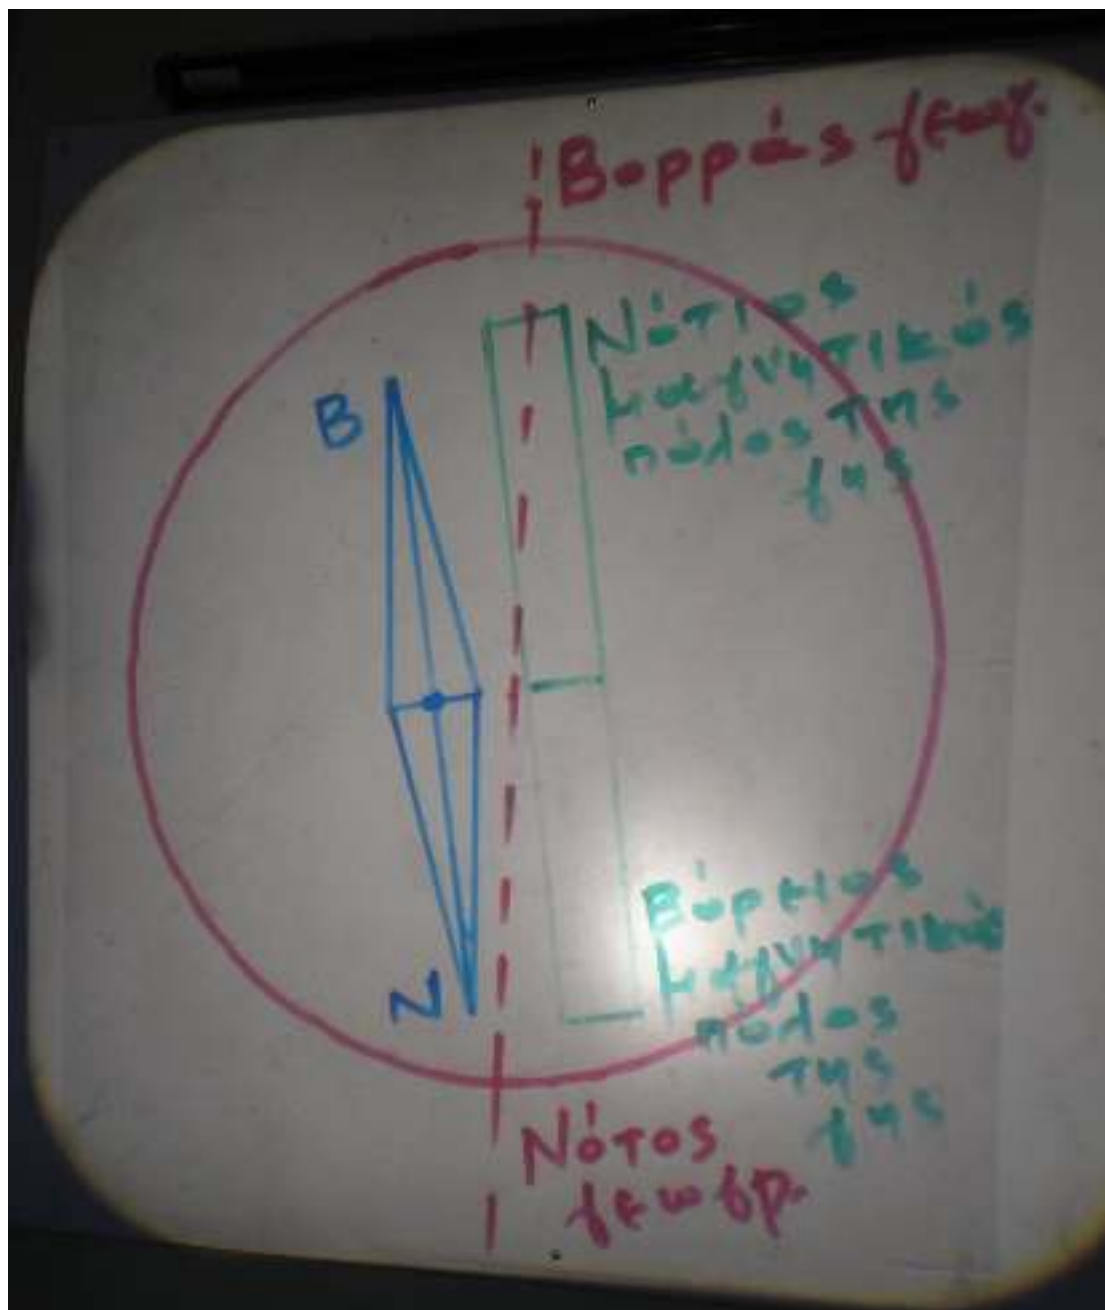 Βορράς γεωγ.
Νότιος
μαγνητικός
πόλος της
γης
Β
Βόρειος
μαγνητικός
πόλος
της
γης
Ν
Νότος
γεωγρ.